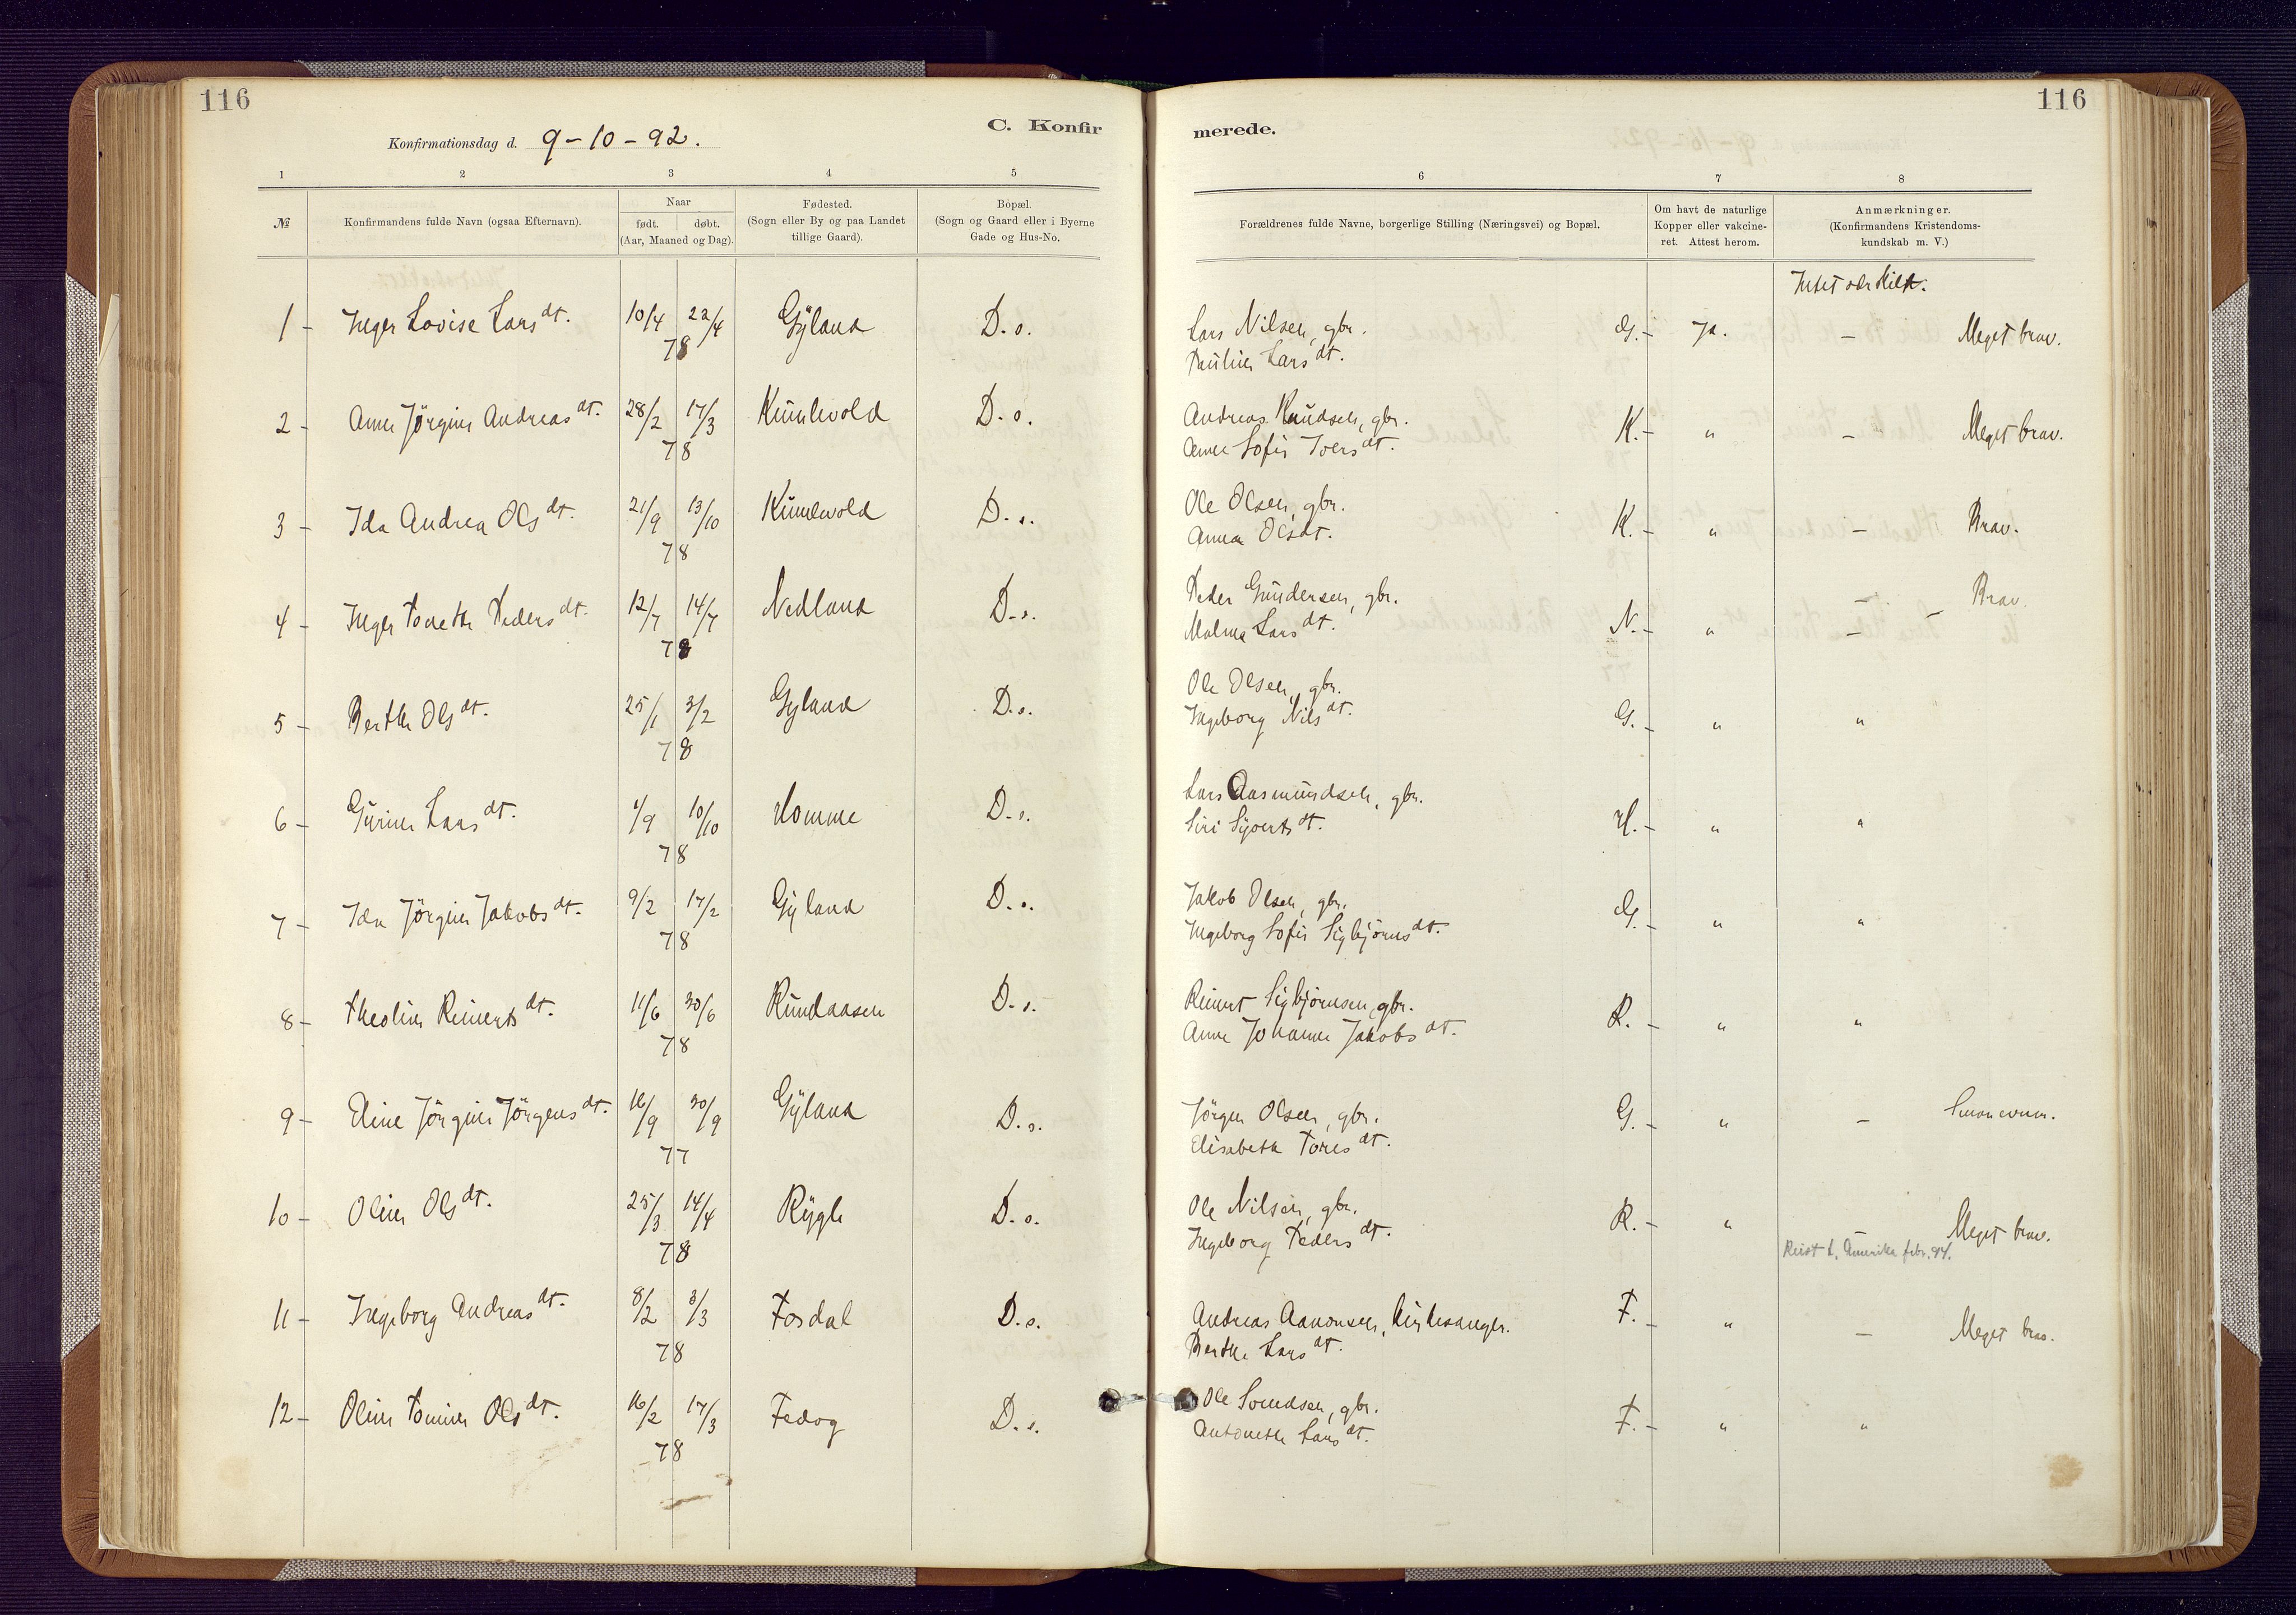 116
116
Konfirmationsdag d. 9-10-92.
C. Konfir
merede.
1 2 3 4 5 6 7 8
№
Konfirmandens fulde Navn (ogsaa Efternavn).
Naar
født. døbt.
(Aar, Maaned og Dag).
Fødested.
(Sogn eller By og paa Landet
tillige Gaard).
Bopæl.
(Sogn og Gaard eller i Byerne
Gade og Hus-No.
Forældrenes fulde Navne, borgerlige Stilling (Næringsvei) og Bopæl.
Om havt de naturlige
Kopper eller vakcine-
ret. Attest herom.
Anmærkninger.
(Konfirmandens Kristendoms-
kundskab m. V.)
1 - Inger Lovise Larsdt. 10/4 22/4 Gyland D. o. Lars Nilsen, gbr. G. - Ja. - Meget brav.
78 Pauline Larsdt.
2 - Anne Jörgine Andreasdt. 28/2 17/3 Kumlevold D. o. Andreas Knudsen, gbr. K. - " - Meget brav.
78 Anne Sofie Iversdt.
3 - Ida Andrea Olsdt. 21/9 13/10 Kumlevold D. o. Ole Olsen, gbr. K. - " - Brav.
78 Anna Olsdt.
4 - Inger Tonette Pedersdt. 12/7 14/7 Nedland D. o. Peder Gundersen, gbr. N. - " - Brav.
78 Malena Larsdt.
5 - Berthe Olsdt. 25/1 3/2 Gyland D. o. Ole Olsen, gbr. G. - " "
78 Ingeborg Nilsdt.
6 - Gurine Larsdt. 4/9 10/10 Homme D. o. Lars Aasmundsen, gbr. H. - " "
78 Siri Sivertsdt.
7 - Ida Jörgine Jakobsdt. 9/2 17/2 Gyland D. o. Jakob Olsen, gbr. G. - " "
78 Ingeborg Sofie Sigbjörnsdt.
8 - Theoline Reinertsdt. 11/6 30/6 Rundaasen D. o. Reinert Sigbjörnsen, gbr. R. - " "
78 Anne Johanne Jakobsdt.
9 - Eline Jörgine Jörgensdt. 16/9 30/9 Gyland D. o. Jörgen Olsen, gbr. G. - " -
77 Elisabeth Toresdt.
10 - Oline Olsdt. 25/3 14/4 Rygle D. o. Ole Nilsen, gbr. R. - " - Meget brav.
78 Ingeborg Pedersdt. Reist t. Amerika febr. 94.
11 - Ingeborg Andreasdt. 8/2 3/3 Fosdal D. o. Andreas Aanonsen, Kirkesanger. F. - " - Meget brav.
78 Berthe Larsdt.
12 - Oline Tomine Olsdt. 16/2 17/3 Fedog D. o. Ole Svendsen, gbr. F. - " "
78 Antonette Larsdt.